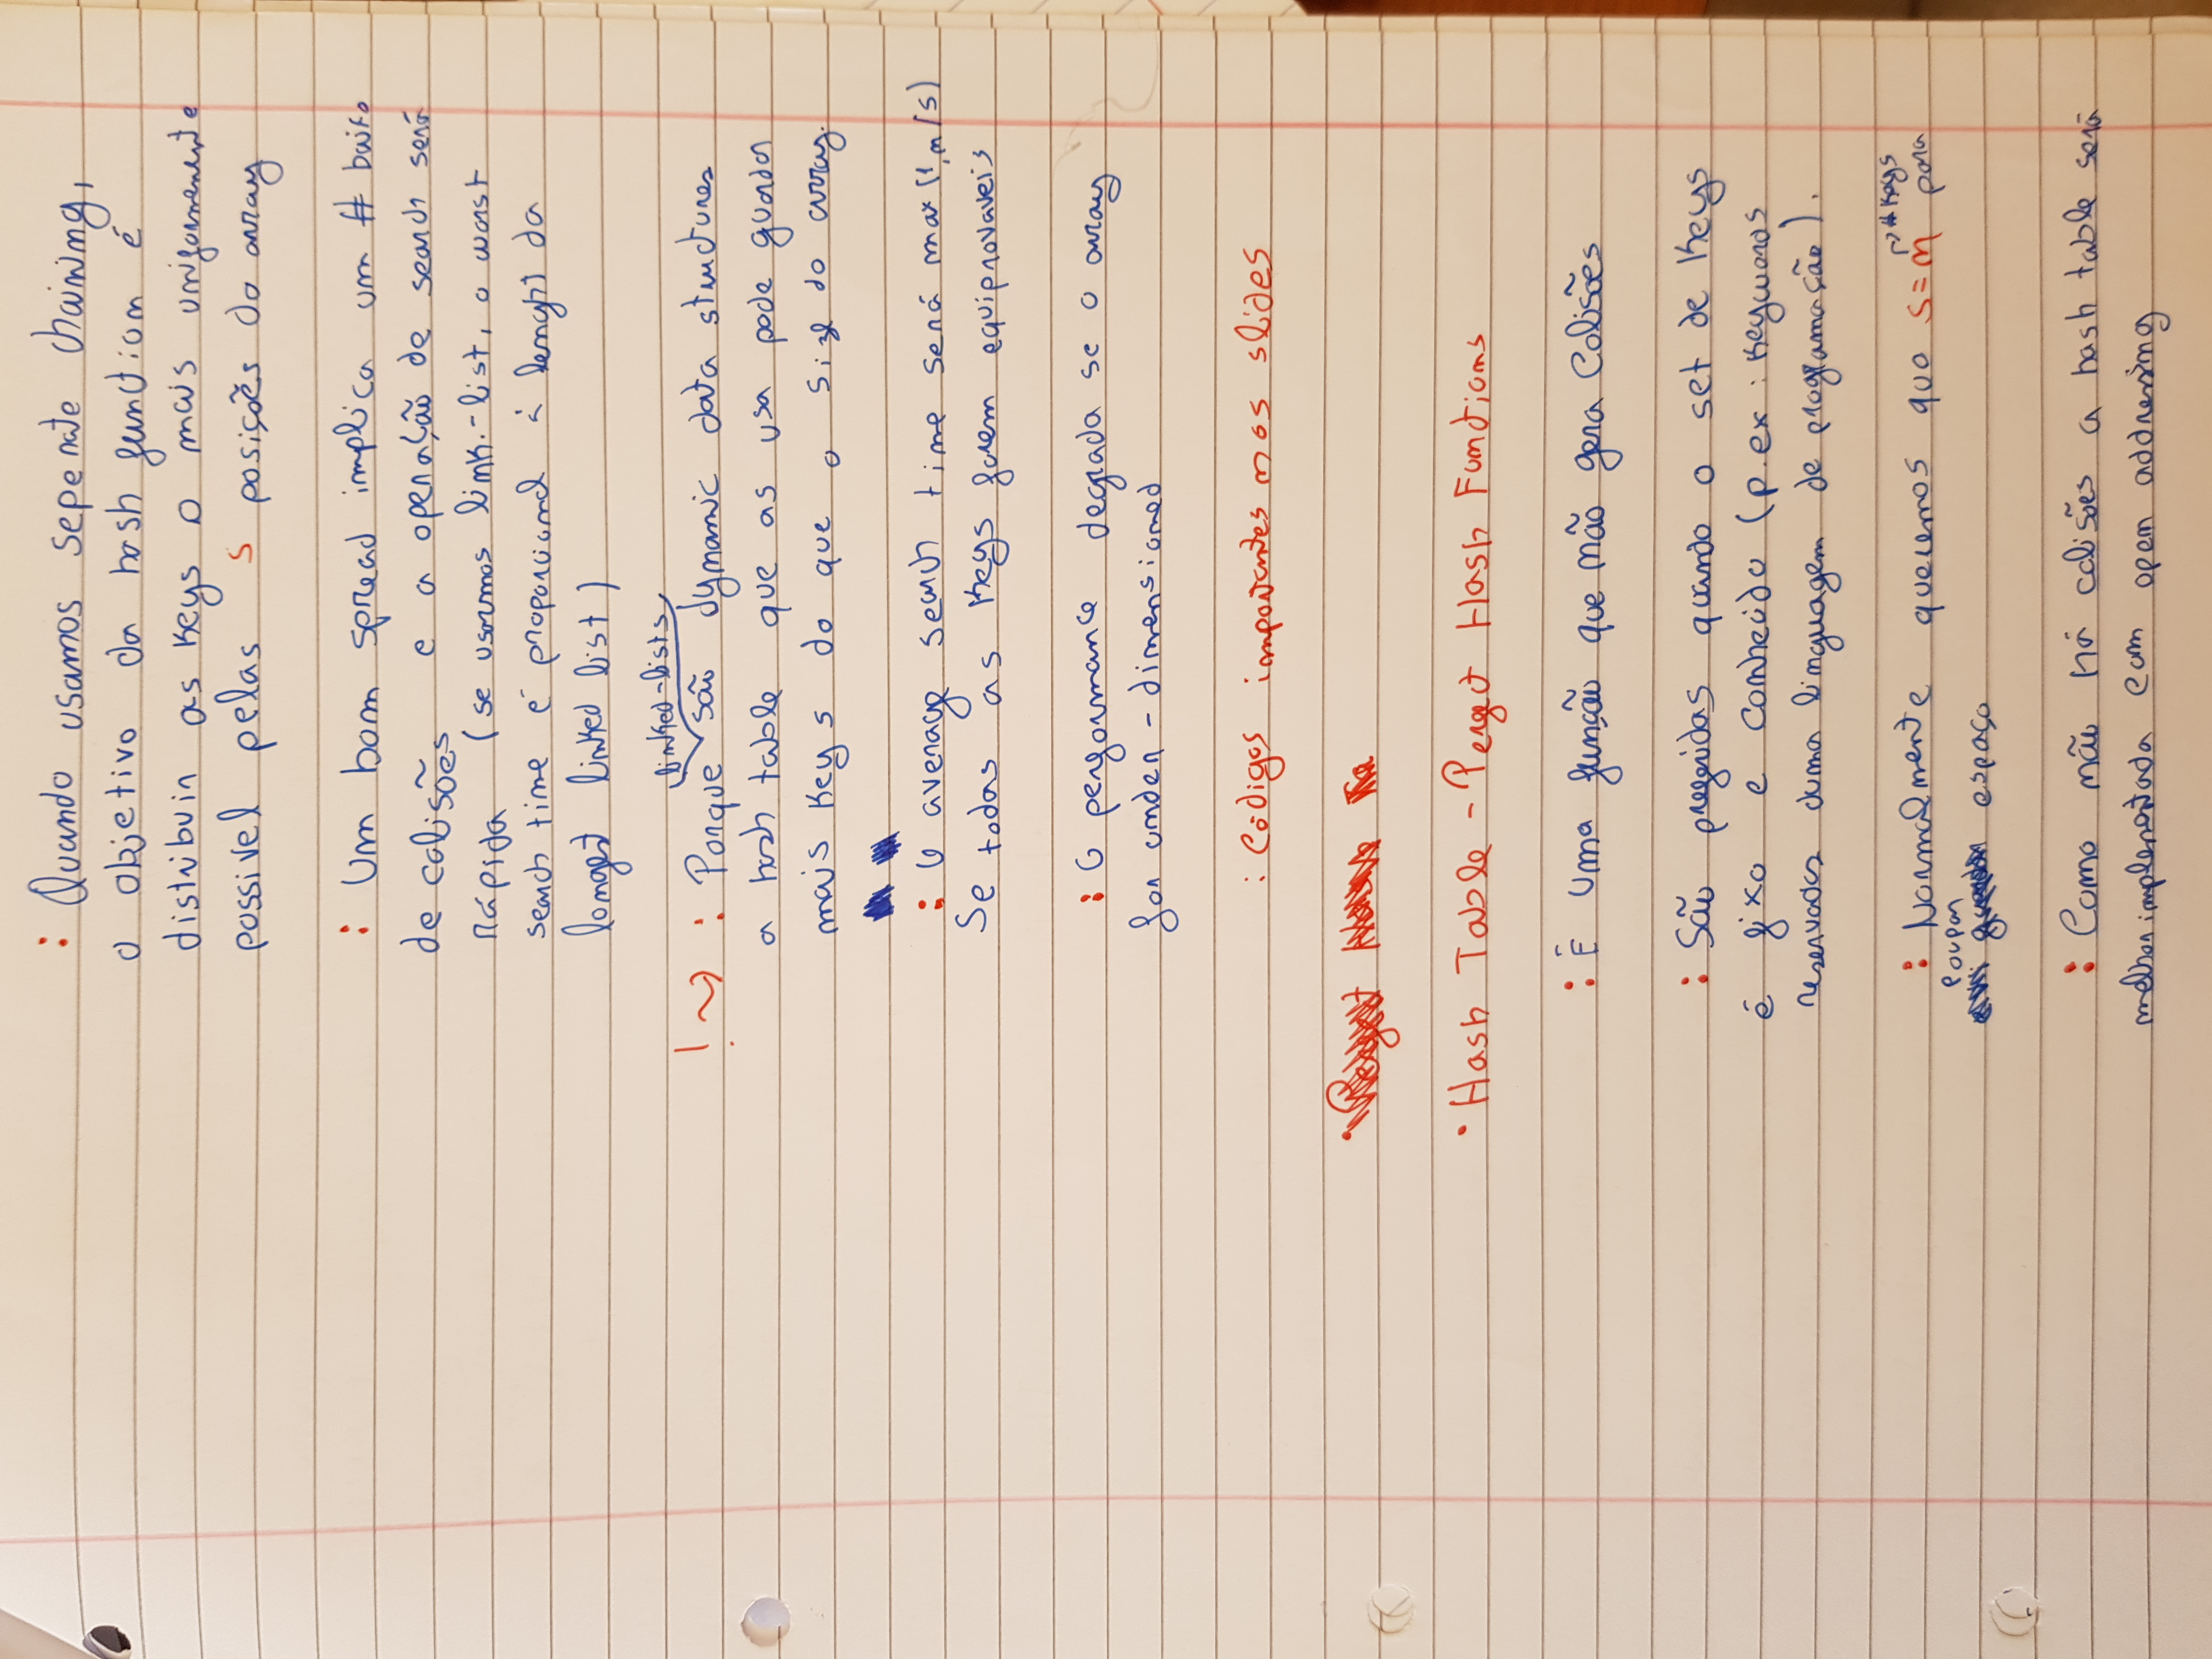 : Quando usamos seperate chaining,
o objetivo da hash function é
distribuir as keys o mais uniformemente
possivel pelas s posições do array
: Um bom spread implica um # baixo
de colisões e a operação de search será
rápida (se usarmos link.-list, o worst
search time é proporcional à lenght da
longest linked list)
linked-lists
! ~> : Porque são dynamic data structures
a hash table que as usa pode guardar
mais keys do que o size do array.
: O average search time será max(1,n/s)
Se todas as keys forem equiprovaveis
: O performance degrada se o array
for under-dimensioned
: Códigos importantes nos slides
• Hash Table - Perfect Hash Functions
: É uma função que não gera colisões
: São preferidas quando o set de keys
é fixo e conhecido (p.ex: keywords
reservadas duma linguagem de programação).
-> # keys
: Normalmente queremos que s=n para
poupar
espaço
: Como não há colisões a hash table será
melhor implementada com open addressing